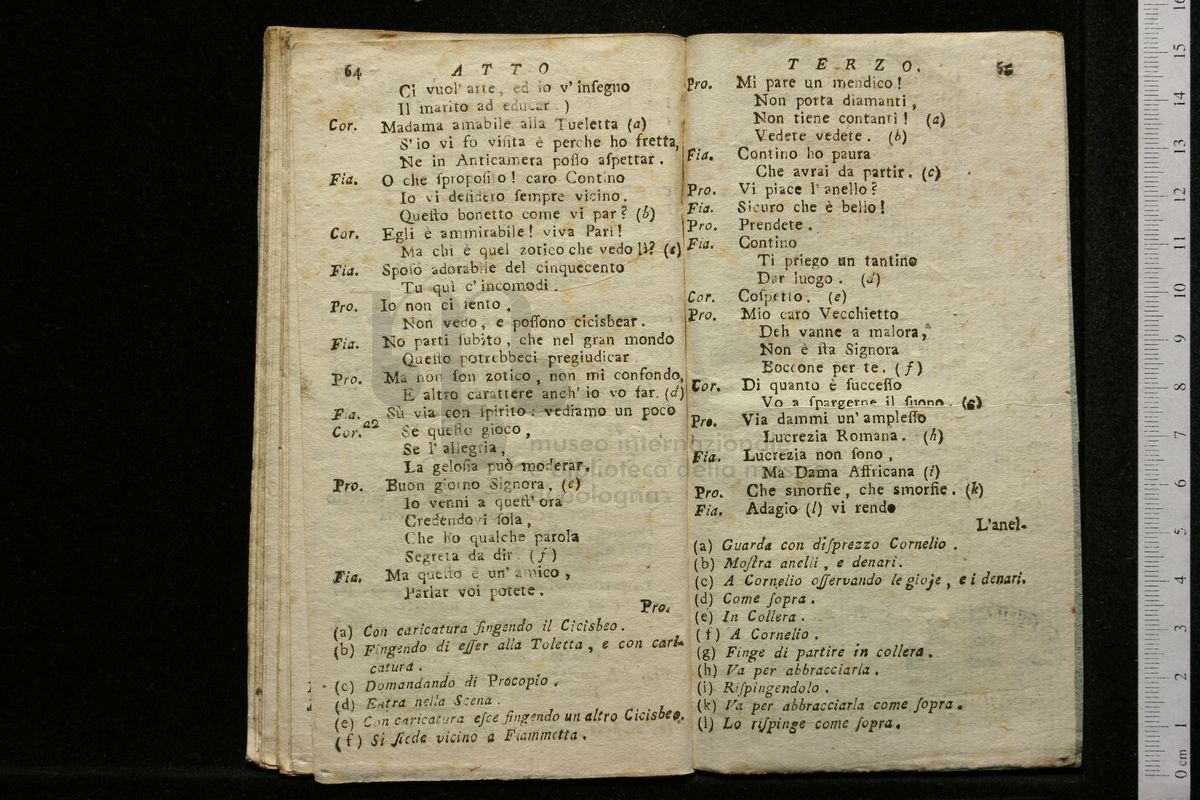 64 ATTO
Ci vuol' arte, ed io v' inſegno
Il marito ad educar.)
Cor. Madama amabile alla Tueletta (a)
S' io vi fo viſita è perche ho fretta,
Ne in Anticamera poſſo aſpettar.
Fia. O che ſpropoſito! caro Contino
Io vi deſidero ſempre vicino.
Queſto bonetto come vi par? (b)
Cor. Egli è ammirabile! viva Pari!
Ma chi è quel zotico che vedo lì? (c)
Fia. Spoſo adorabile del cinquecento
Tu quì c' incomodi.
Pro. Io non ci ſento,
Non vedo, e poſſono cicisbear.
Fia. No parti ſubito, che nel gran mondo
Queſto potrebbeci pregiudicar.
Pro. Ma non ſon zotico, non mi confondo,
E altro carattere anch' io vo far. (d)
Fia. Sù via con ſpirito: vediamo un poco
Cor. a2 Se queſto gioco,
Se l' allegria,
La geloſia può moderar.
Pro. Buon giorno Signora, (e)
Io venni a queſt' ora
Credendovi ſola,
Che ho qualche parola
Segreta da dir. (f)
Fia. Ma queſto è un' amico,
Parlar voi potete.
Pro.
(a) Con caricatura fingendo il Cicisbeo.
(b) Fingendo di eſſer alla Toletta, e con cari-
catura.
(c) Domandando di Procopio.
(d) Entra nella Scena.
(e) Con caricatura eſce fingendo un altro Cicisbeo.
(f) Si ſiede vicino a Fiammetta.
TERZO. 65
Pro. Mi pare un mendico!
Non porta diamanti,
Non tiene contanti! (a)
Vedete vedete. (b)
Fia. Contino ho paura
Che avrai da partir. (c)
Pro. Vi piace l' anello?
Fia. Sicuro che è bello!
Pro. Prendete.
Fia. Contino
Ti priego un tantino
Dar luogo. (d)
Cor. Coſpetto. (e)
Pro. Mio caro Vecchietto
Deh vanne a malora,
Non è ſta Signora
Boccone per te. (f)
Cor. Di quanto è ſucceſſo
Vo a ſpargerne il ſuono. (g)
Pro. Via dammi un' ampleſſo
Lucrezia Romana. (h)
Fia. Lucrezia non ſono,
Ma Dama Affricana (i)
Pro. Che smorfie, che smorfie. (k)
Fia. Adagio (l) vi rendo
L'anel-
(a) Guarda con diſprezzo Cornelio.
(b) Moſtra anelli, e denari.
(c) A Cornelio oſſervando le gioje, e i denari.
(d) Come ſopra.
(e) In Collera.
(f) A Cornelio.
(g) Finge di partire in collera.
(h) Va per abbracciarla.
(i) Riſpingendolo.
(k) Va per abbracciarla come ſopra.
(l) Lo riſpinge come ſopra.
museo internazionale
e biblioteca della musica
bologna
0 cm 1 2 3 4 5 6 7 8 9 10 11 12 13 14 15 16